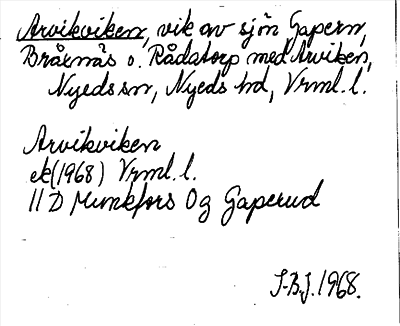 Arvikviken, vik av sjön Gapern,
Bråtnäs o. Rådatorp med Arviken,
Nyeds sn, Nyeds hd, Vrml. l.
Arvikviken
ek(1968) Vrml. l.
11 D Munkfors 0g Gaperud
S-B.J. 1968.